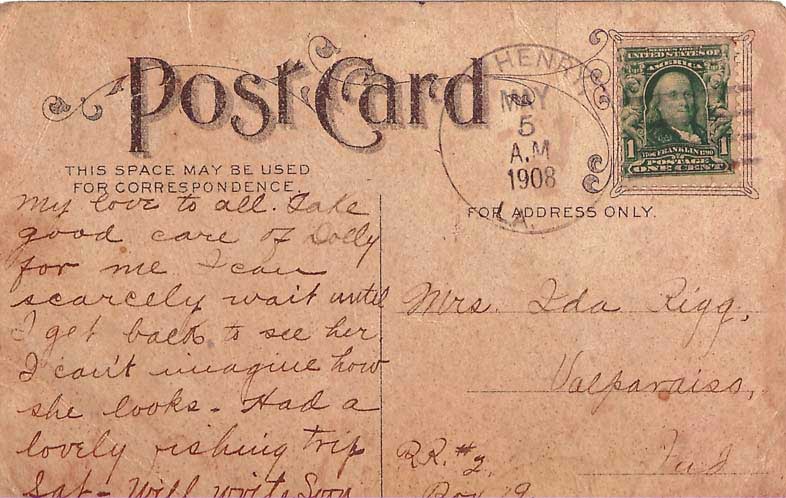 Post Card
THIS SPACE MAY BE USED
FOR CORRESPONDENCE.
FOR ADDRESS ONLY.
HENRY
MAY
5
A.M
1908
LA.
SERIES 1902
UNITED STATES OF
AMERICA
1706 FRANKLIN 1790
1 POSTAGE 1
ONE CENT
My love to all. Take
good care of Dolly
for me I can
scarcely wait until
I get back to see her.
I can't imagine how
she looks - Had a
lovely fishing trip
Sat - Will write Soon
Mrs. Ida Rigg,
Valparaiso,
Ind
R.R. #2.
Box 9